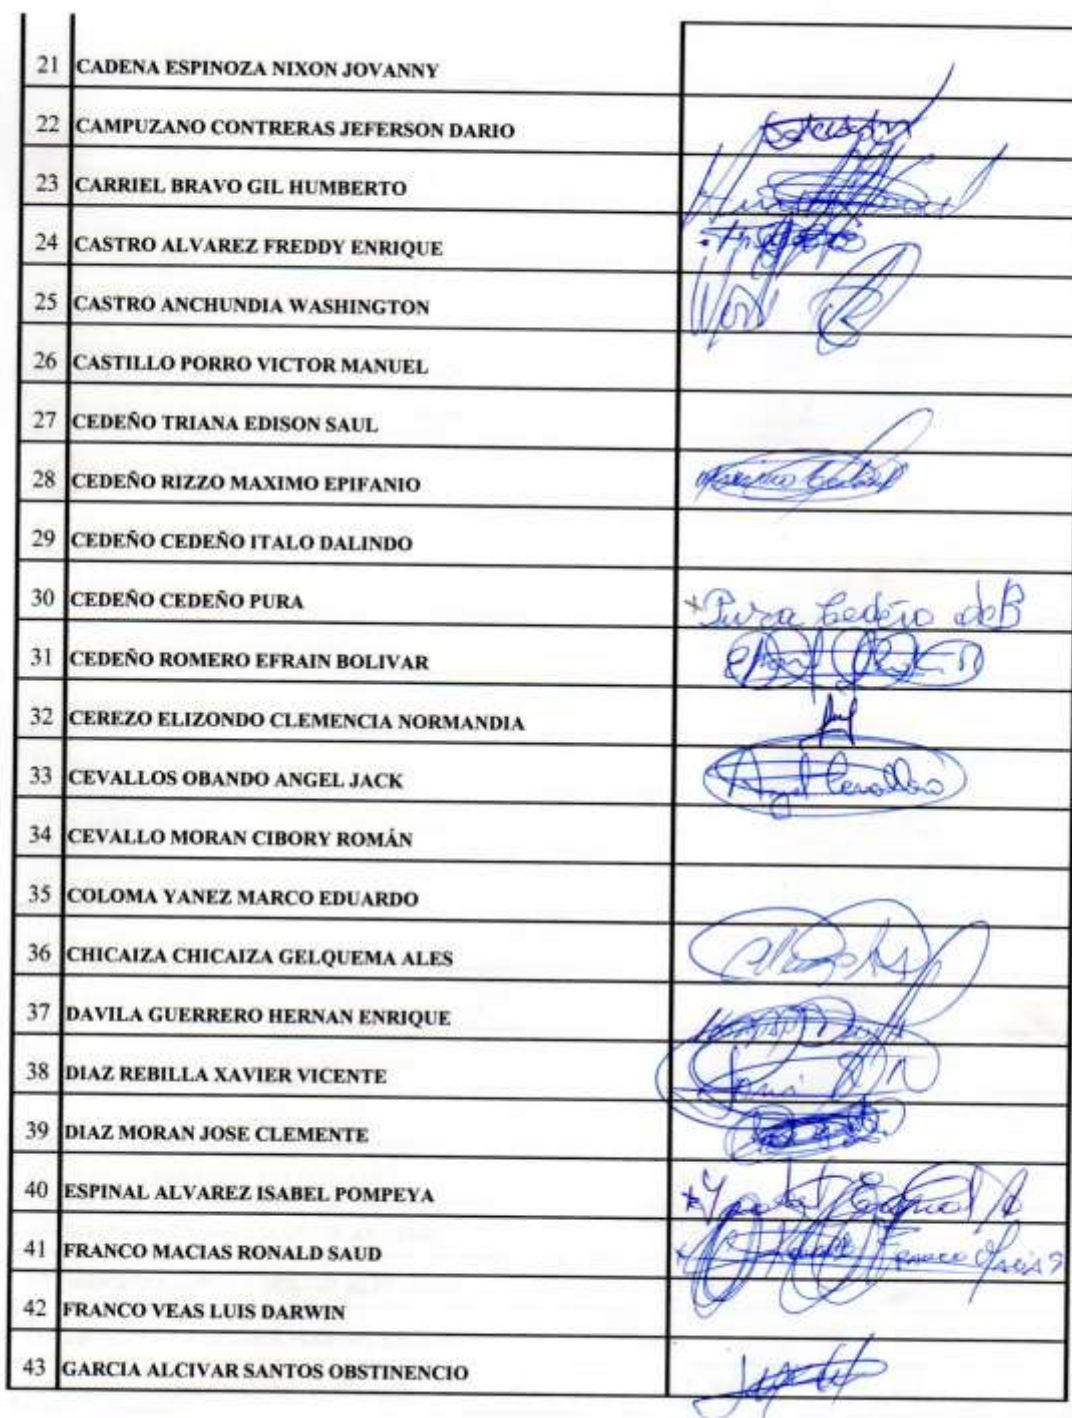 21 CADENA ESPINOZA NIXON JOVANNY
22 CAMPUZANO CONTRERAS JEFERSON DARIO
23 CARRIEL BRAVO GIL HUMBERTO
24 CASTRO ALVAREZ FREDDY ENRIQUE
25 CASTRO ANCHUNDIA WASHINGTON
26 CASTILLO PORRO VICTOR MANUEL
27 CEDEÑO TRIANA EDISON SAUL
28 CEDEÑO RIZZO MAXIMO EPIFANIO
29 CEDEÑO CEDEÑO ITALO DALINDO
30 CEDEÑO CEDEÑO PURA Pura Cedeño de B
31 CEDEÑO ROMERO EFRAIN BOLIVAR
32 CEREZO ELIZONDO CLEMENCIA NORMANDIA
33 CEVALLOS OBANDO ANGEL JACK Angel Cevallos
34 CEVALLO MORAN CIBORY ROMÁN
35 COLOMA YANEZ MARCO EDUARDO
36 CHICAIZA CHICAIZA GELQUEMA ALES
37 DAVILA GUERRERO HERNAN ENRIQUE
38 DIAZ REBILLA XAVIER VICENTE
39 DIAZ MORAN JOSE CLEMENTE
40 ESPINAL ALVAREZ ISABEL POMPEYA
41 FRANCO MACIAS RONALD SAUD Franco Macias
42 FRANCO VEAS LUIS DARWIN
43 GARCIA ALCIVAR SANTOS OBSTINENCIO